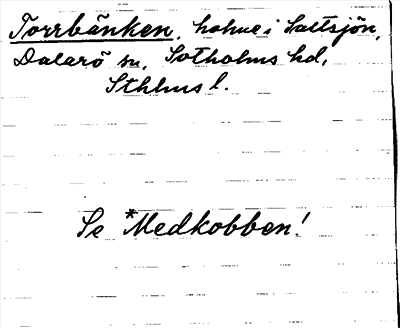 Torrbänken, holme i Saltsjön,
Dalarö sn, Sotholms hd,
Sthlms l.
Se *Medkobben!